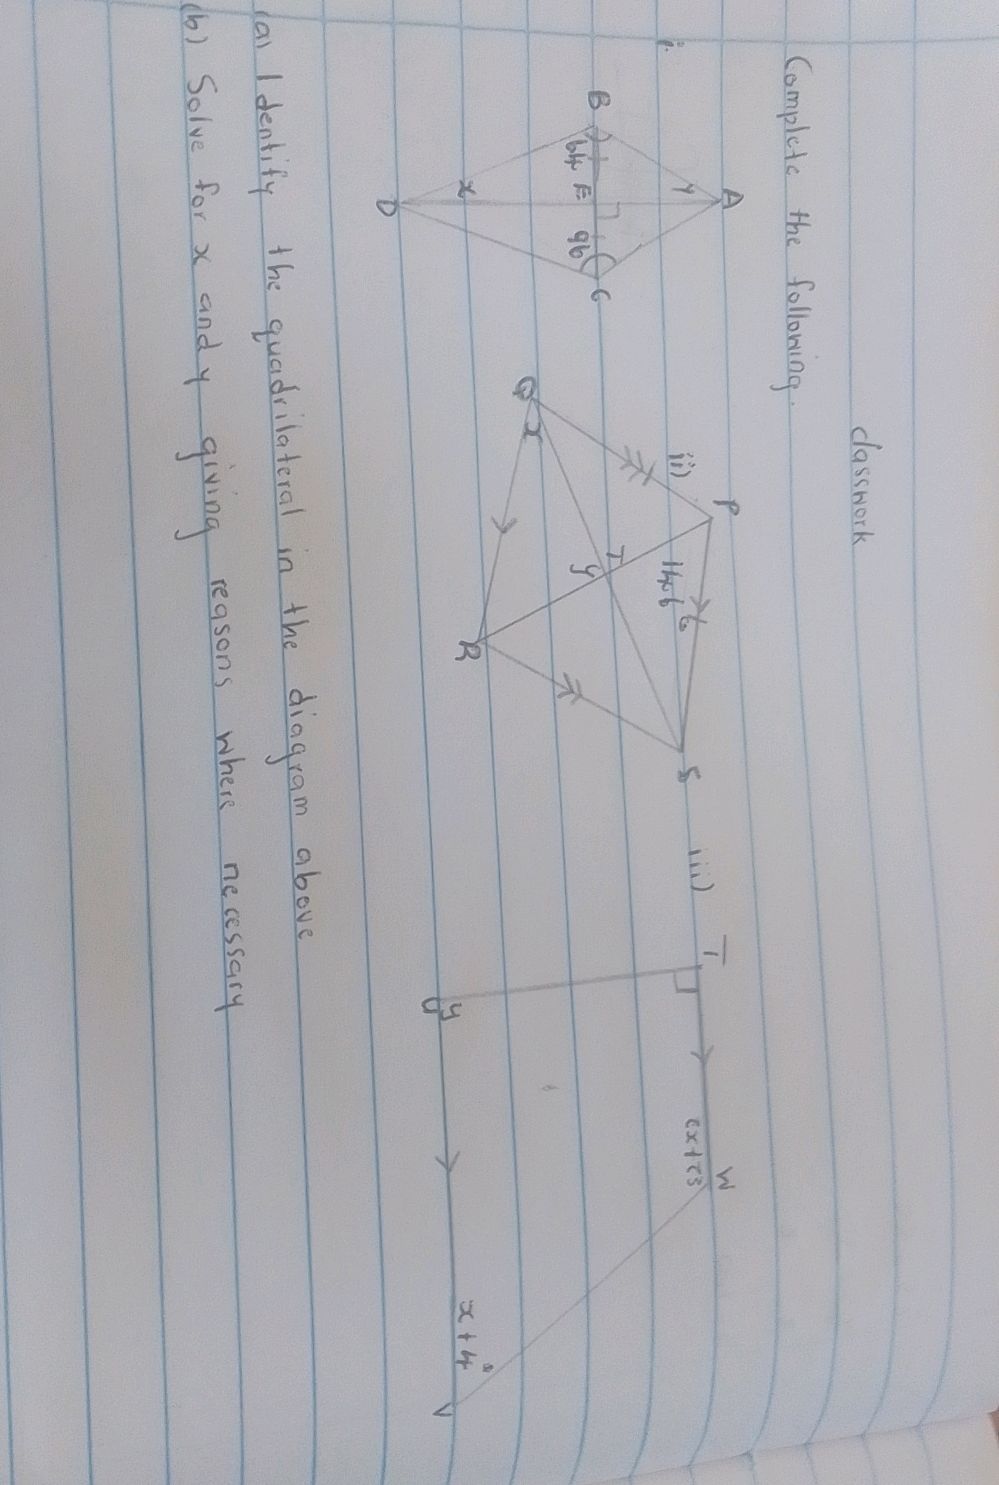 classwork
Complete the following.
i.
A
y
B
64
E
96
C
x
D
ii)
P
146
6
Q
x
T
y
R
S
iii)
T
W
U
y
x+4°
V
(a) Identify the quadrilateral in the diagram above
(b) Solve for x and y giving reasons where necessary